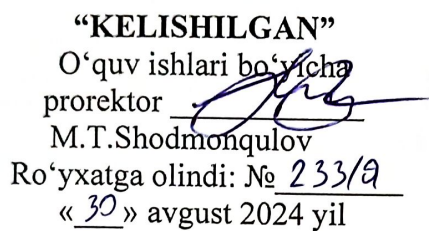 “KELISHILGAN”
O‘quv ishlari bo‘yicha
prorektor
M.T.Shodmonqulov
Ro‘yxatga olindi: № 233/a
«30» avgust 2024 yil